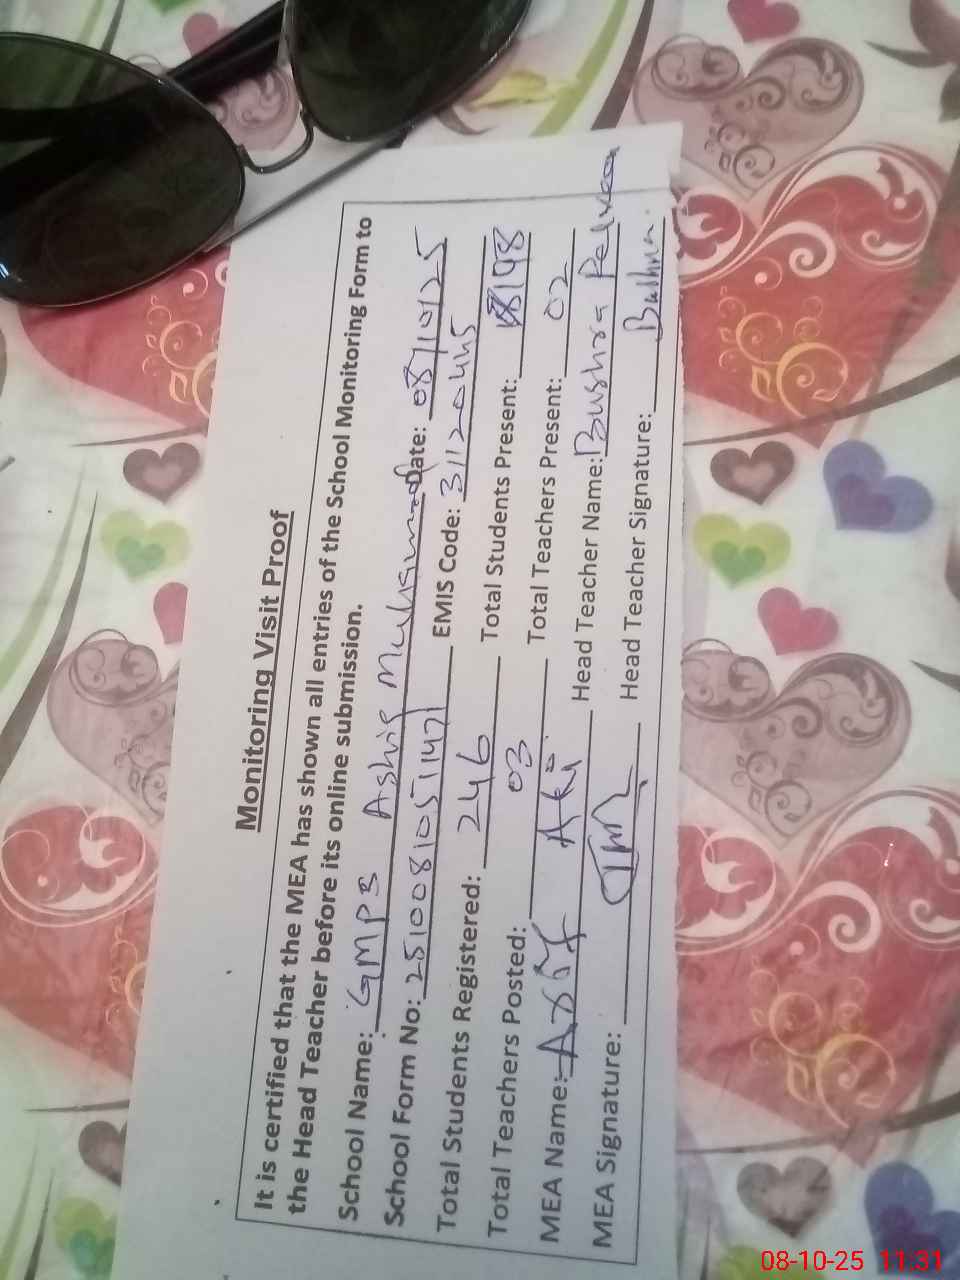 Monitoring Visit Proof
It is certified that the MEA has shown all entries of the School Monitoring Form to
the Head Teacher before its online submission.
School Name: GMPS Ashiq Muhammad Date: 08/10/25
School Form No: 2510081051471 EMIS Code: 31120445
Total Students Registered: 246 Total Students Present: 198
Total Teachers Posted: 03 Total Teachers Present: 02
MEA Name: Asif Ali Head Teacher Name: Bushra Perveen
MEA Signature: Head Teacher Signature: Bushra
08-10-25 11:31